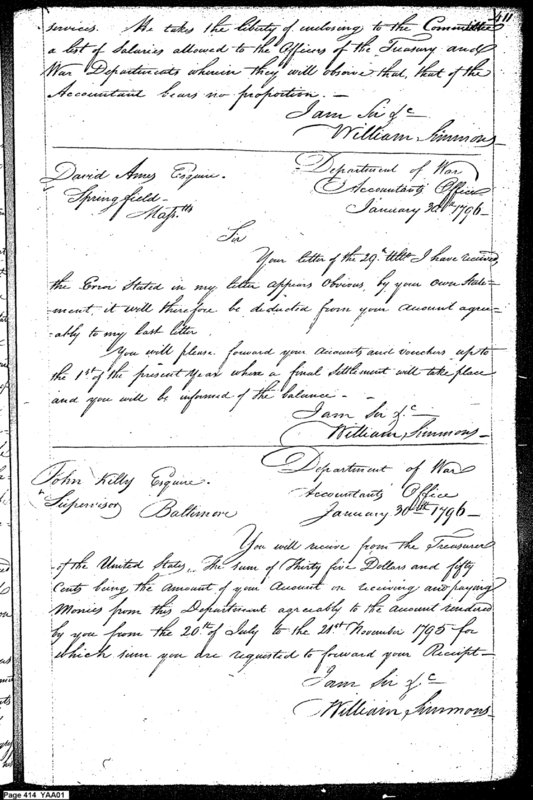 411
services. He takes the liberty of inclosing to the Committee
a list of Salaries allowed to the Officers of the Treasury and
War Departments wherein they will observe that, that of the
Accountant bears no proportion. —
I am Sir &c
William Simmons
David Ames Esquire.
Springfield
Massts
Department of War
Accountants Office
January 30th 1796
Sir
Your letter of the 29th Ulto I have received,
the Error Stated in my letter appears Obvious by your own State-
ment, it will therefore be deducted from your account agree-
ably to my last letter.
You will please forward your accounts and vouchers up to
the 1st of the present Year when a final Settlement will take place
and you will be informed of the balance -
I am Sir &c
William Simmons
John Kelly Esquire.
Supervisor Baltimore
Department of War
Accountants Office
January 30th 1796
You will receive from the Treasurer
of the United States, The sum of Thirty five Dollars and fifty
Cents being the amount of your Account on receiving and paying
Monies from this Department agreably to the account rendered
by you from the 20th of July to the 21st November 1795 for
which sum you are requested to forward your Receipt -
I am Sir &c
William Simmons
Page 414 YAA01